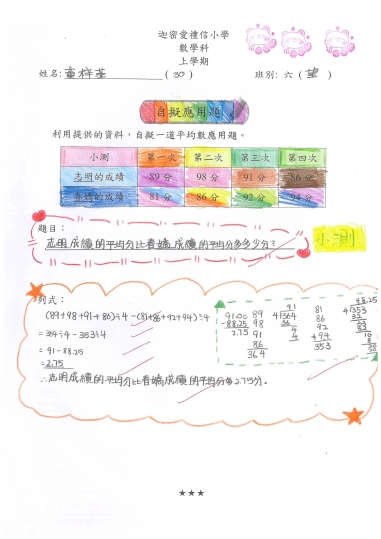 迦密愛禮信小學
數學科
上學期
姓名: (30) 班別: 六 (望)
自擬應用題
利用提供的資料，自擬一道平均數應用題。
小測 第一次 第二次 第三次 第四次
志明的成績 89分 98分 91分 86分
春嬌的成績 81分 86分 92分 94分
題目：
志明成績的平均分比春嬌成績的平均分多多少分？
小測
列式：
(89+98+91+86)÷4-(81+86+92+94)÷4
=364÷4-353÷4
=91-88.25
=2.75
∴志明成績的平均分比春嬌成績的平均分多2.75分。
91.00
-88.25
2.75
89
98
91
86
364
91
4√364
36
4
4
81
86
92
+94
353
88.25
4√353
32
33
★★★